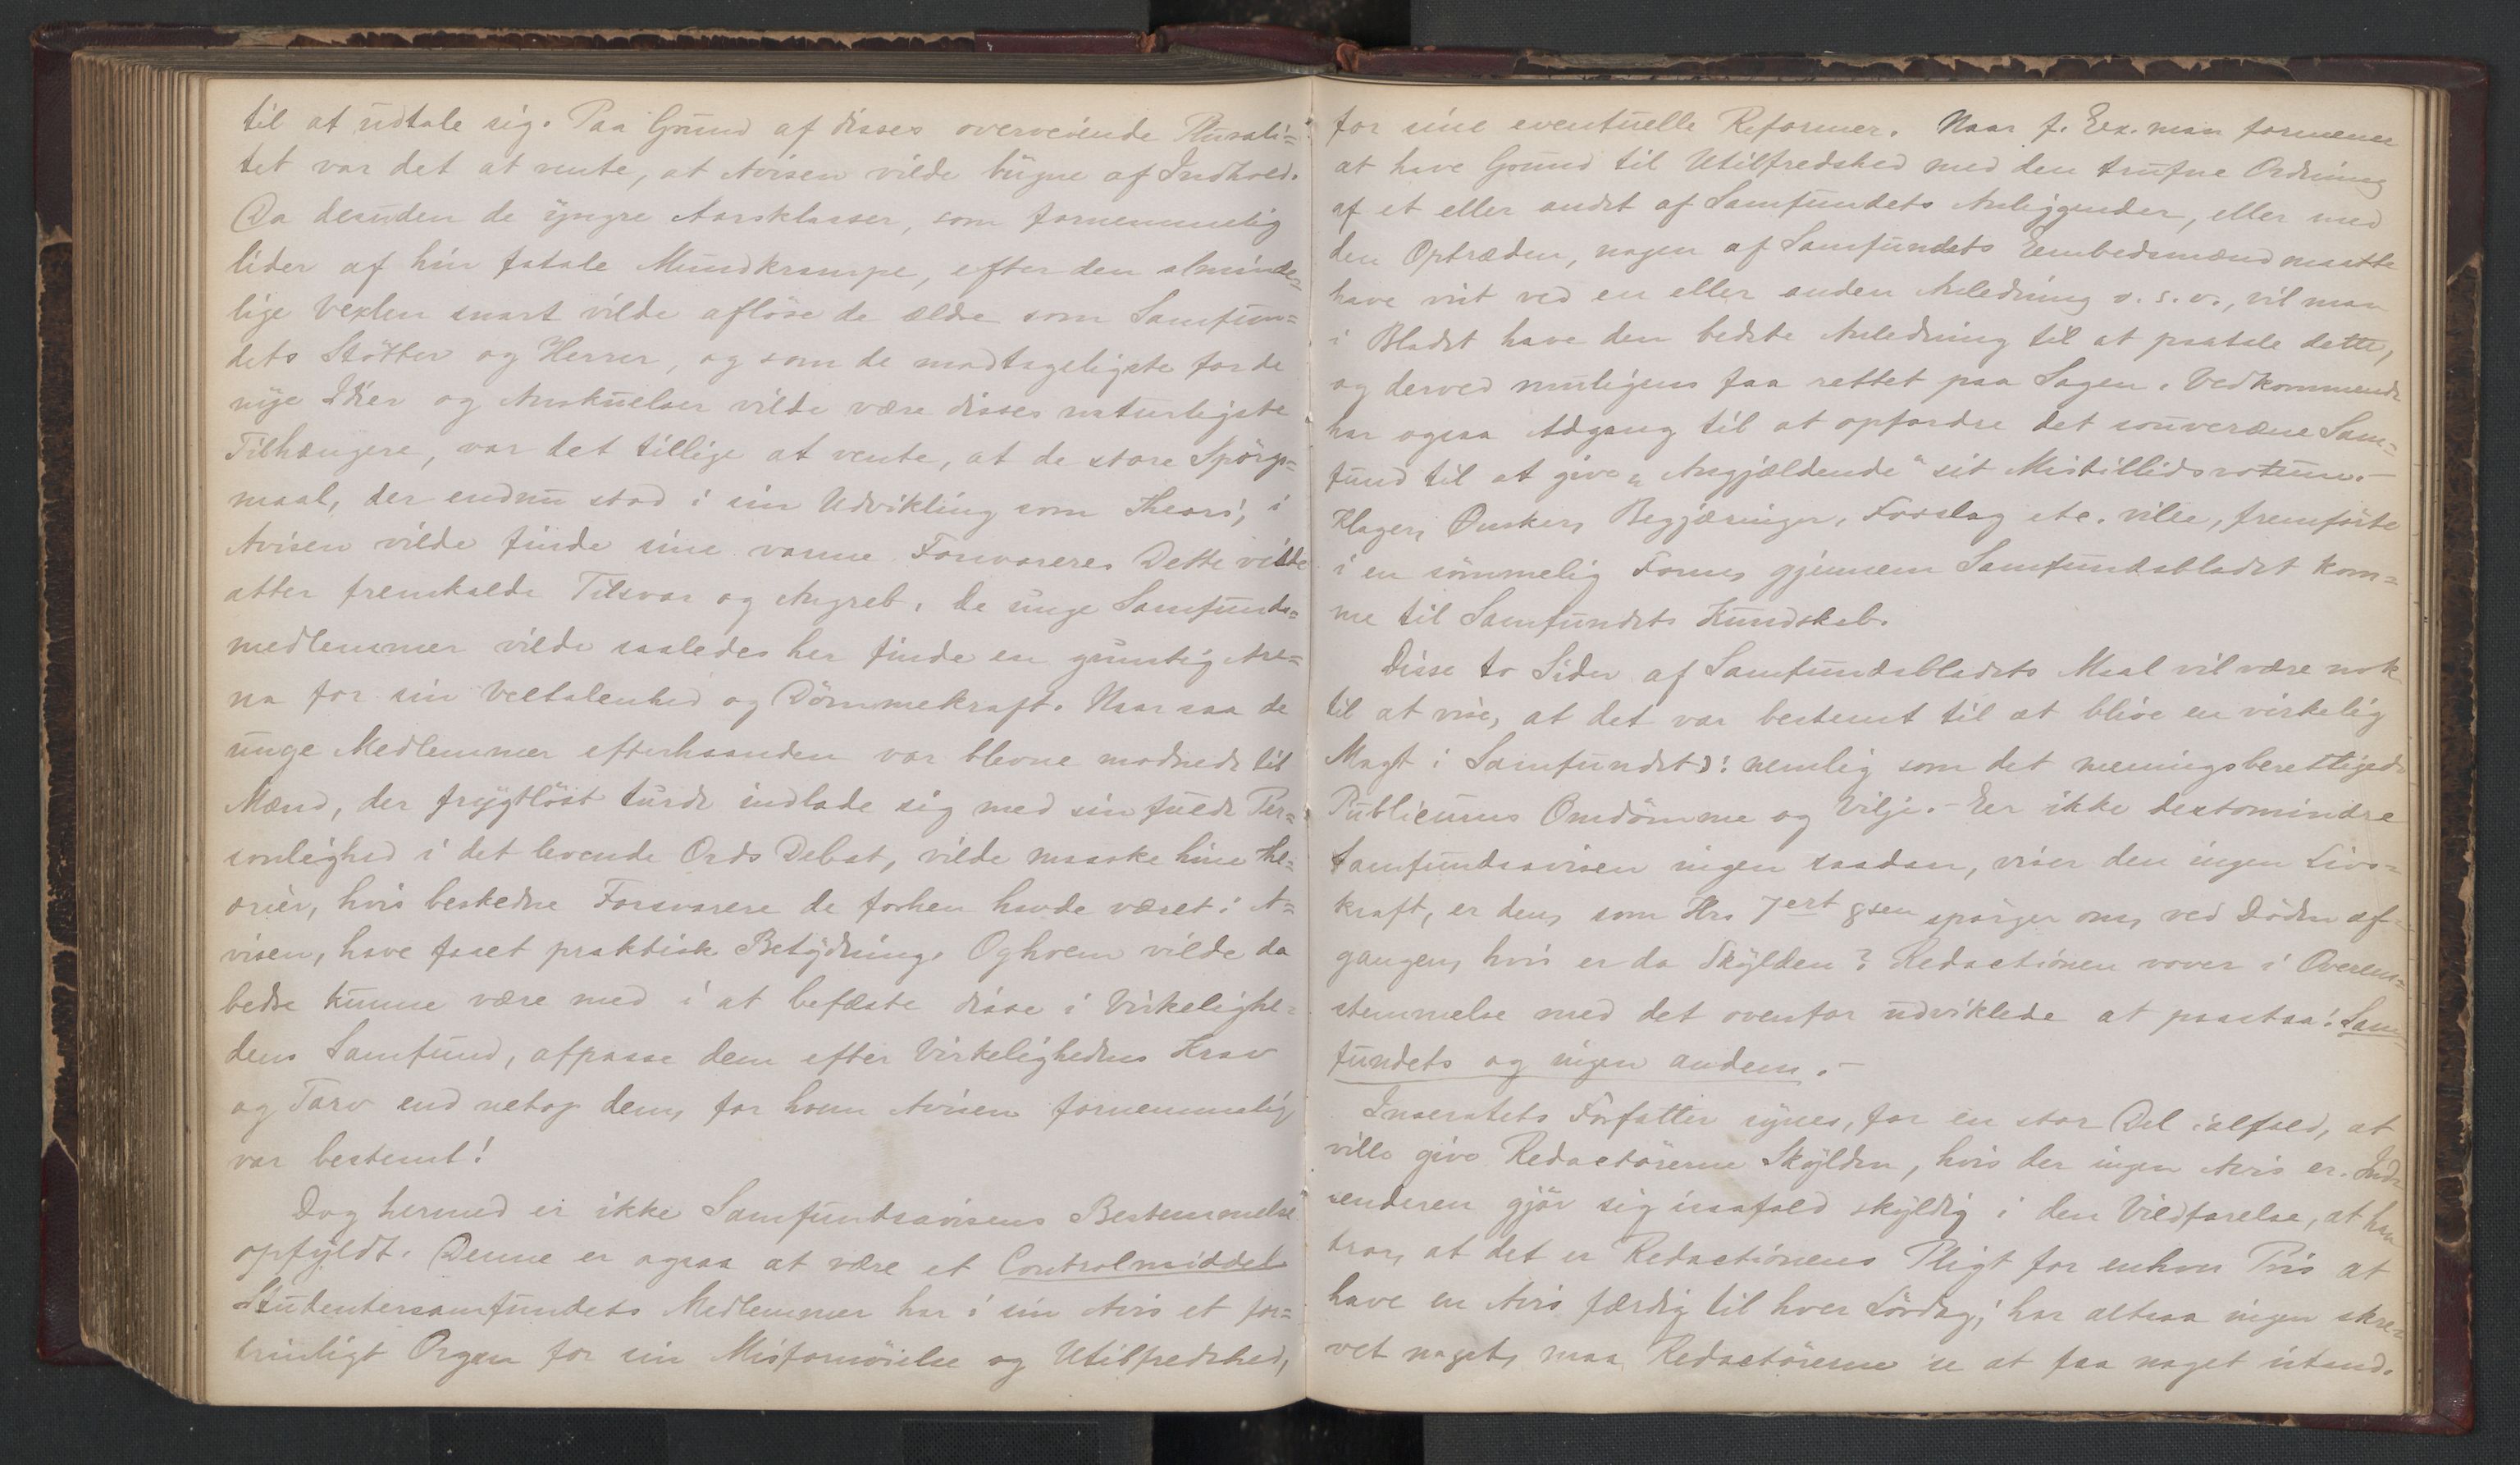 til at udtale sig. Paa Grund af disses overveiende Plurali=
tet var det at vente, at Avisen vilde bugne af Indhold.
Da desuden de yngre Aarsklasser, som fornemmelig
lider af hin fatale Mundkrampe, efter den alminde=
lige Vexlen snart vilde aflöse de ældre som Samfun=
dets Stötter og Herrer, og som de modtageligste for de
nye Idéer og Anskuelser vilde være disses naturligste
Tilhængere, var det tillige at vente, at de store Spörgs=
maal, der endnu stod i sin Udvikling som Theori, i
Avisen vilde finde sine varme Forsvarere. Dette vilde
atter fremkalde Tilsvar og Angreb, de unge Samfunds=
medlemmer vilde saaledes her finde en gunstig Are=
na for sin Veltalenhed og Dömmekraft. Naar saa de
unge Medlemmer efterhaanden var blevne modnede til
Mænd, der frygtlöst turde indlade sig med sin fulde Per=
sonlighed i det levende Ords Debat, vilde maaske hine The=
orier, hvis beskedne Forsvarere de forhen havde været i A=
visen, have faaet praktisk Betydning. Og hvem vilde da
bedre kunne være med i at befæste disse i Virkelighe=
dens Samfund, afpasse dem efter Virkelighedens Krav
og Tarv end netop dem, for hvem Avisen fornemmelig
var bestemt!
Dog hermed er ikke Samfundsavisens Bestemmelse
opfyldt. Denne er ogsaa at være et Controlmiddel.
Studentersamfundets Medlemmer har i sin Avis et for=
trinligt Organ for sin Misfornöielse og Utilfredshed,
for sine eventuelle Reformer. Naar f. Eex. man formener
at have Grund til Utilfredshed med den trufne Ordning
af et eller andet af Samfundets Anliggender, eller med
den Optræden, nogen af Samfundets Eembedsmænd maatte
have vist ved en eller anden Anledning o. s. v., vil man
i Bladet have den bedste Anledning til at paatale dette,
og derved muligens faa rettet paa Sagen. Vedkommende
har ogsaa Adgang til at opfordre det souveræne Sam=
fund til at give „Angjældende" sit Mistillidsvotum. –
Klager, Önsker, Begjæringer, Forslag etc. ville, fremförte
i en sömmelig Form, gjennem Samfundsbladet kom=
me til Samfundets Kundskab.
Disse to Sider af Samfundsbladets Maal vil være nok
til at vise, at det var bestemt til at blive en virkelig
Magt i Samfundet ɔ: nemlig som det meningsberettigede
Publicums Omdömme og Vilje. – Eer ikke destomindre
Samfundsavisen ingen saadan, viser den ingen Livs=
kraft, er den, som Hrs 7ert 8sen spörger om, ved Döden af=
gangen, hvis er da Skylden? Redactionen vover i Overens=
stemmelse med det ovenfor udviklede at paastaa: Sam=
fundets og ingen andens. –
Inseratets Forfatter synes, for en stor Del ialfald, at
ville give Redactörerne Skylden, hvis der ingen Avis er. Ind=
senderen gjör sig isaafald skyldig i den Vildfarelse, at han
tror, at det er Redactionens Pligt for enhver Pris at
have en Avis færdig til hver Lördag; har altsaa ingen skre=
vet noget, maa Redactörerne se at faa noget istand.